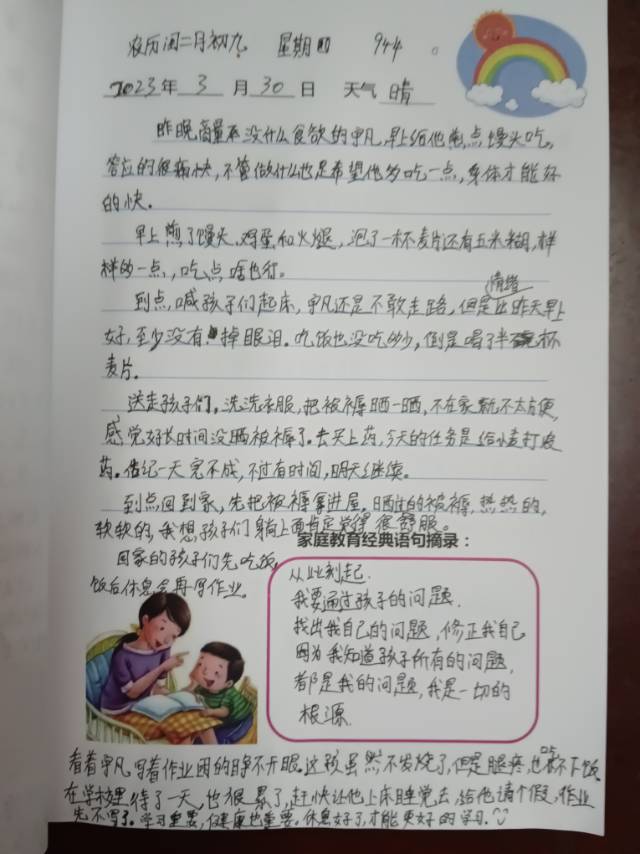 农历闰二月初九 星期四 944。
2023年3月30日 天气 晴
昨晚商量不没什么食欲的宇凡,早上给他煎点馒头吃。
答应的很痛快,不管做什么也是希望他多吃一点,身体才能好
的快。
早上煎了馒头、鸡蛋和火腿,泡了一杯麦片还有玉米糊,样
样的一点,吃点啥也行。
到点,喊孩子们起床,宇凡还是不敢走路,但是情绪比昨天早上
好,至少没有掉眼泪。吃饭也没吃多少,倒是喝了半杯
麦片。
送走孩子们,洗洗衣服,把被褥晒一晒,不在家就不太方便,
感觉好长时间没晒被褥了。去买上药,今天的任务是给打
药。估记一天完不成,不过有时间,明天继续。
到点回到家,先把被褥拿进屋。晒的被褥,热热的,
软软的,我想孩子们躺上面肯定觉得很舒服。
回家的孩子们先吃饭,
饭后休息会再写作业。
家庭教育经典语句摘录:
从此刻起.
我要通过孩子的问题.
找出我自己的问题,修正我自己
因为我知道孩子所有的问题,
都是我的问题,我是一切的
根源.
看着宇凡写着作业困的睁不开眼。这孩虽然不发烧了,但是腿疼,也吃不下饭
在学校里待了一天,也很累了,赶快让他上床睡觉去,给他请个假,作业
先不写了。学习重要,健康也重要。休息好了,才能更好的学习.